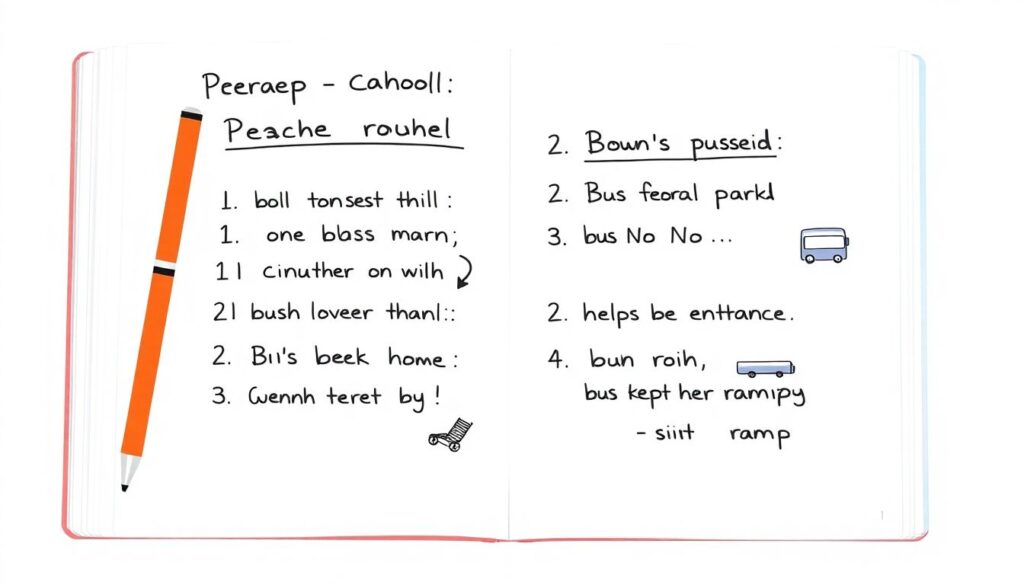 Peeraep - Cahooll:
Peache rouhel
1. boll tonsest thill:
1. one blass marn;
11 cinuther on wilh
21 bush loveer thanl::
2. Bıı's beek home:
3. Gwennh teret by!
2. Bown's pusseid:
2. Bus feoral parkd
3. bus No No ...
2. helps be enttance.
4. bun roih,
bus kept her ramipy
- siirt ramp